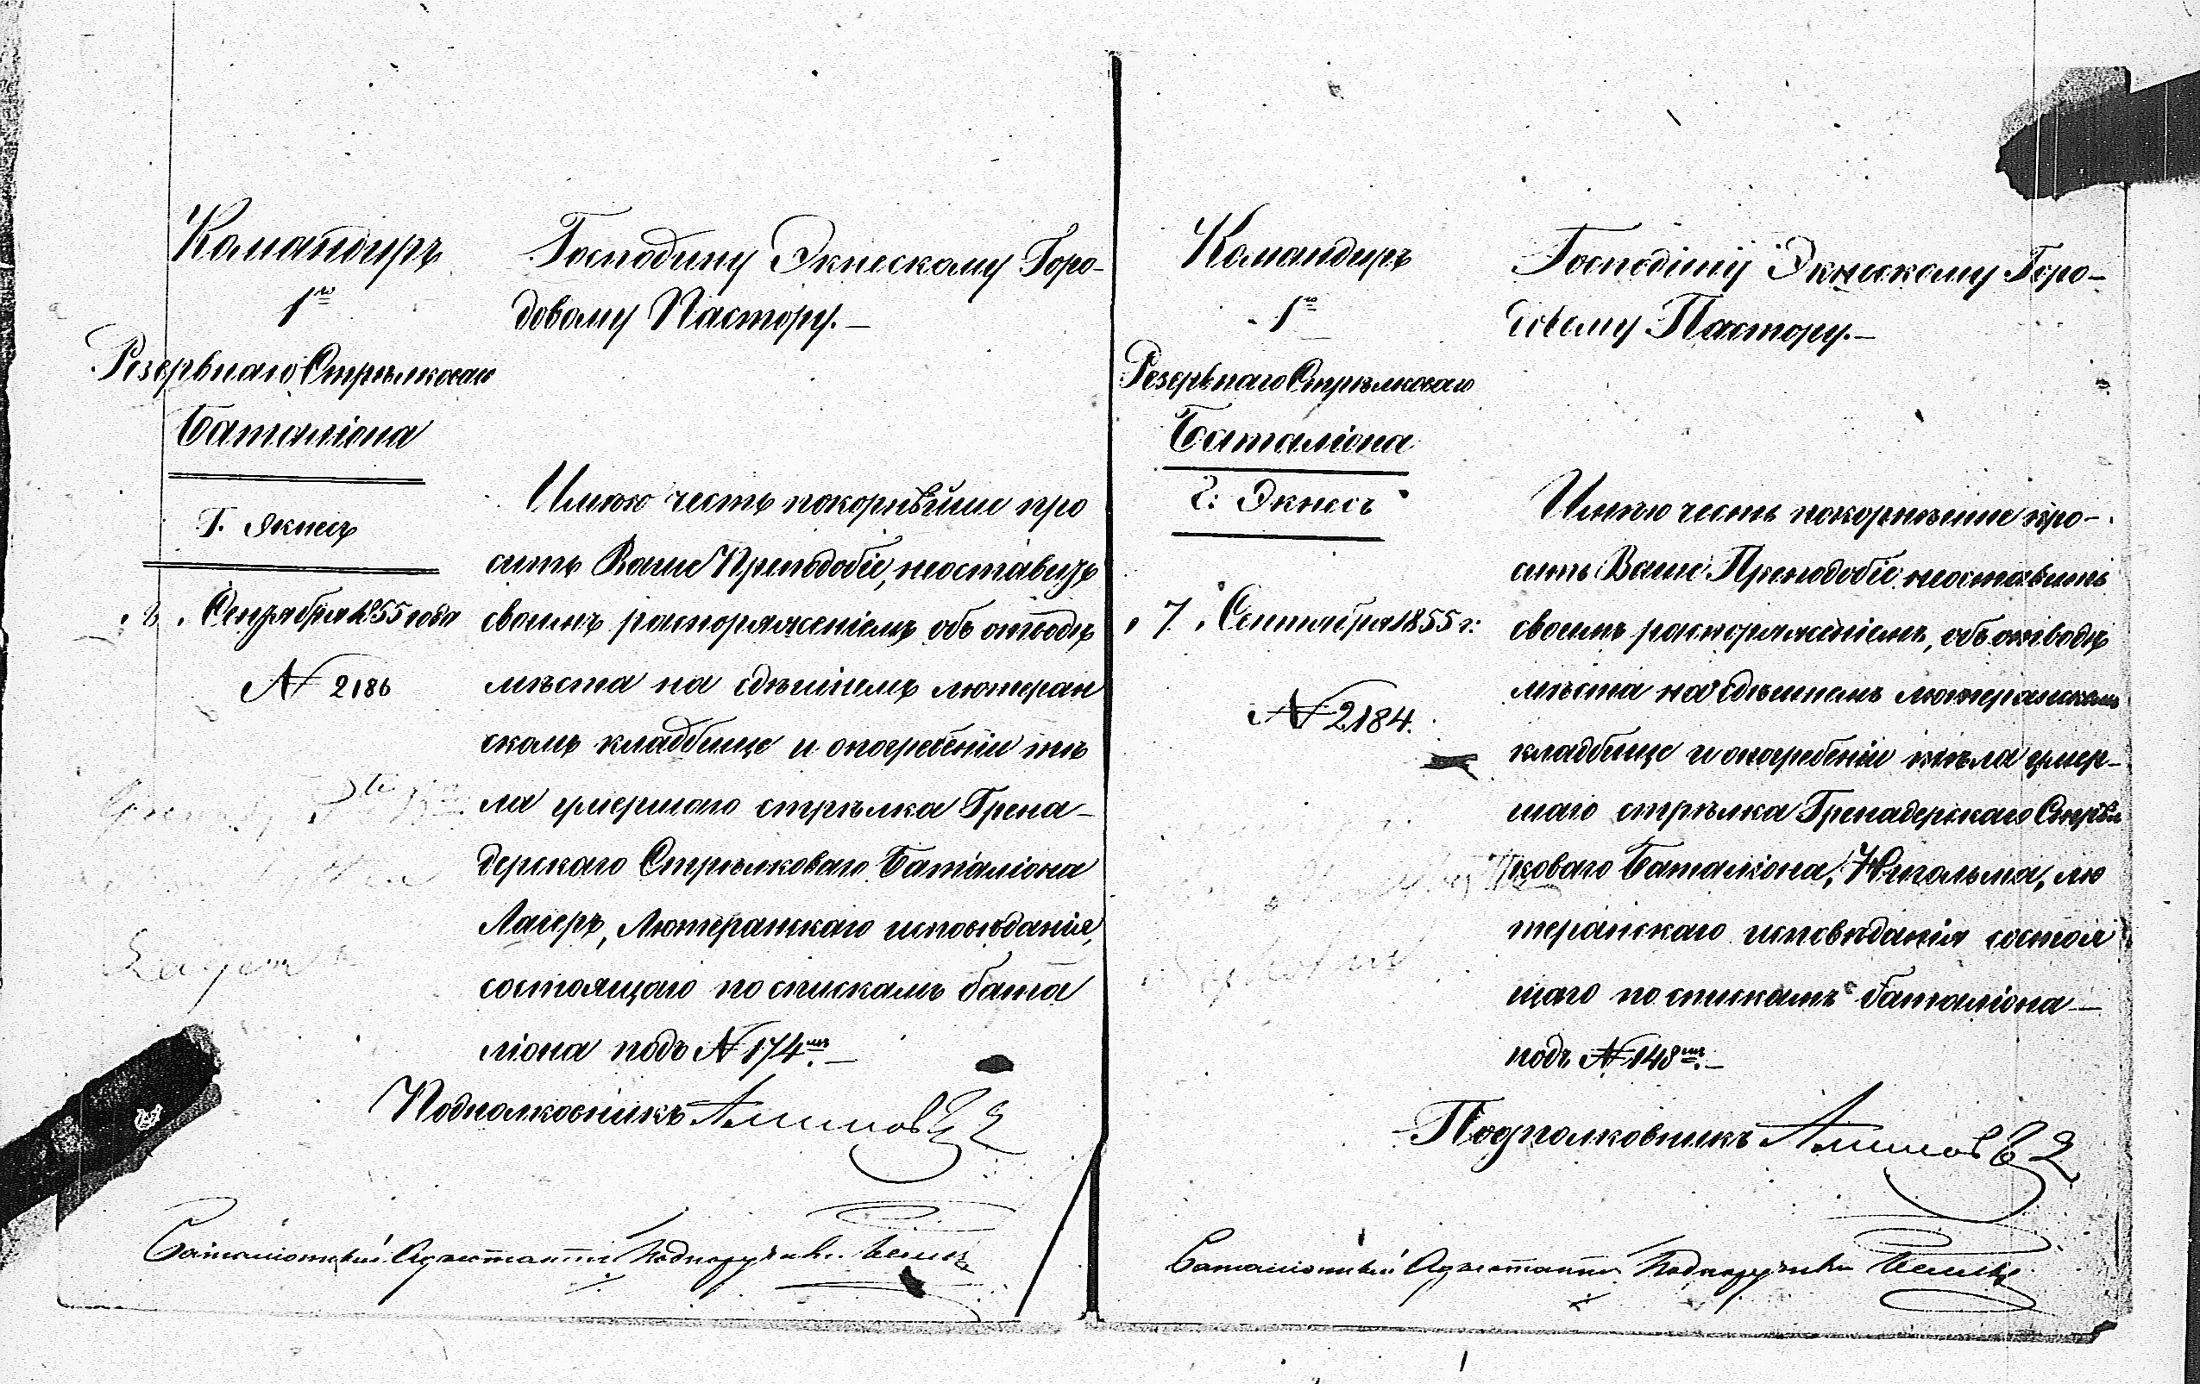 Командиръ
1го
Резервнаго Стрѣлковаго
Баталіона
Г. Экнесъ
Сентября 1855 года
№ 2186
Господину Экнескому Горо-
довому Пастору.—
Имѣю честь покорнѣйше про
сить Ваше Преподобіе, неоставить
своимъ распоряженіемъ объ отводѣ
мѣста на сдѣшнемъ лютеран
скомъ кладбище и опогребеніи тѣ
ла умершаго стрѣлка Грена-
дерскаго Стрѣлковаго Баталіона
Лагеръ, Лютеранскаго исповѣданія,
состоящаго по спискамъ бата
ліона подъ № 174мъ.—
Подполковникъ Аминовъ 2
Баталіонный Адъютантъ Подпоручикъ
Lager
Командиръ
1го
Резервнаго Стрѣлковаго
Баталіона
Г: Экнесъ
„ 7 „ Сентября 1855 г:
№ 2184.
Господину Экнескому Горо-
довому Пастору.—
Имѣю честь покорнѣйше про-
сить Ваше Преподобіе неоставить
своимъ распоряженіемъ, объ отводѣ
мѣста на сдѣшнемъ лютеранскомъ
кладбище и опогребеніи тѣла умер-
шаго стрѣлка Гренадерскаго Стрѣл
коваго Баталіона, лю
теранскаго исповѣданія состоя
щаго по спискамъ баталіона—
подъ № 148мъ.—
Подполковникъ Аминовъ 2
Баталіонный Адъютантъ Подпоручикъ